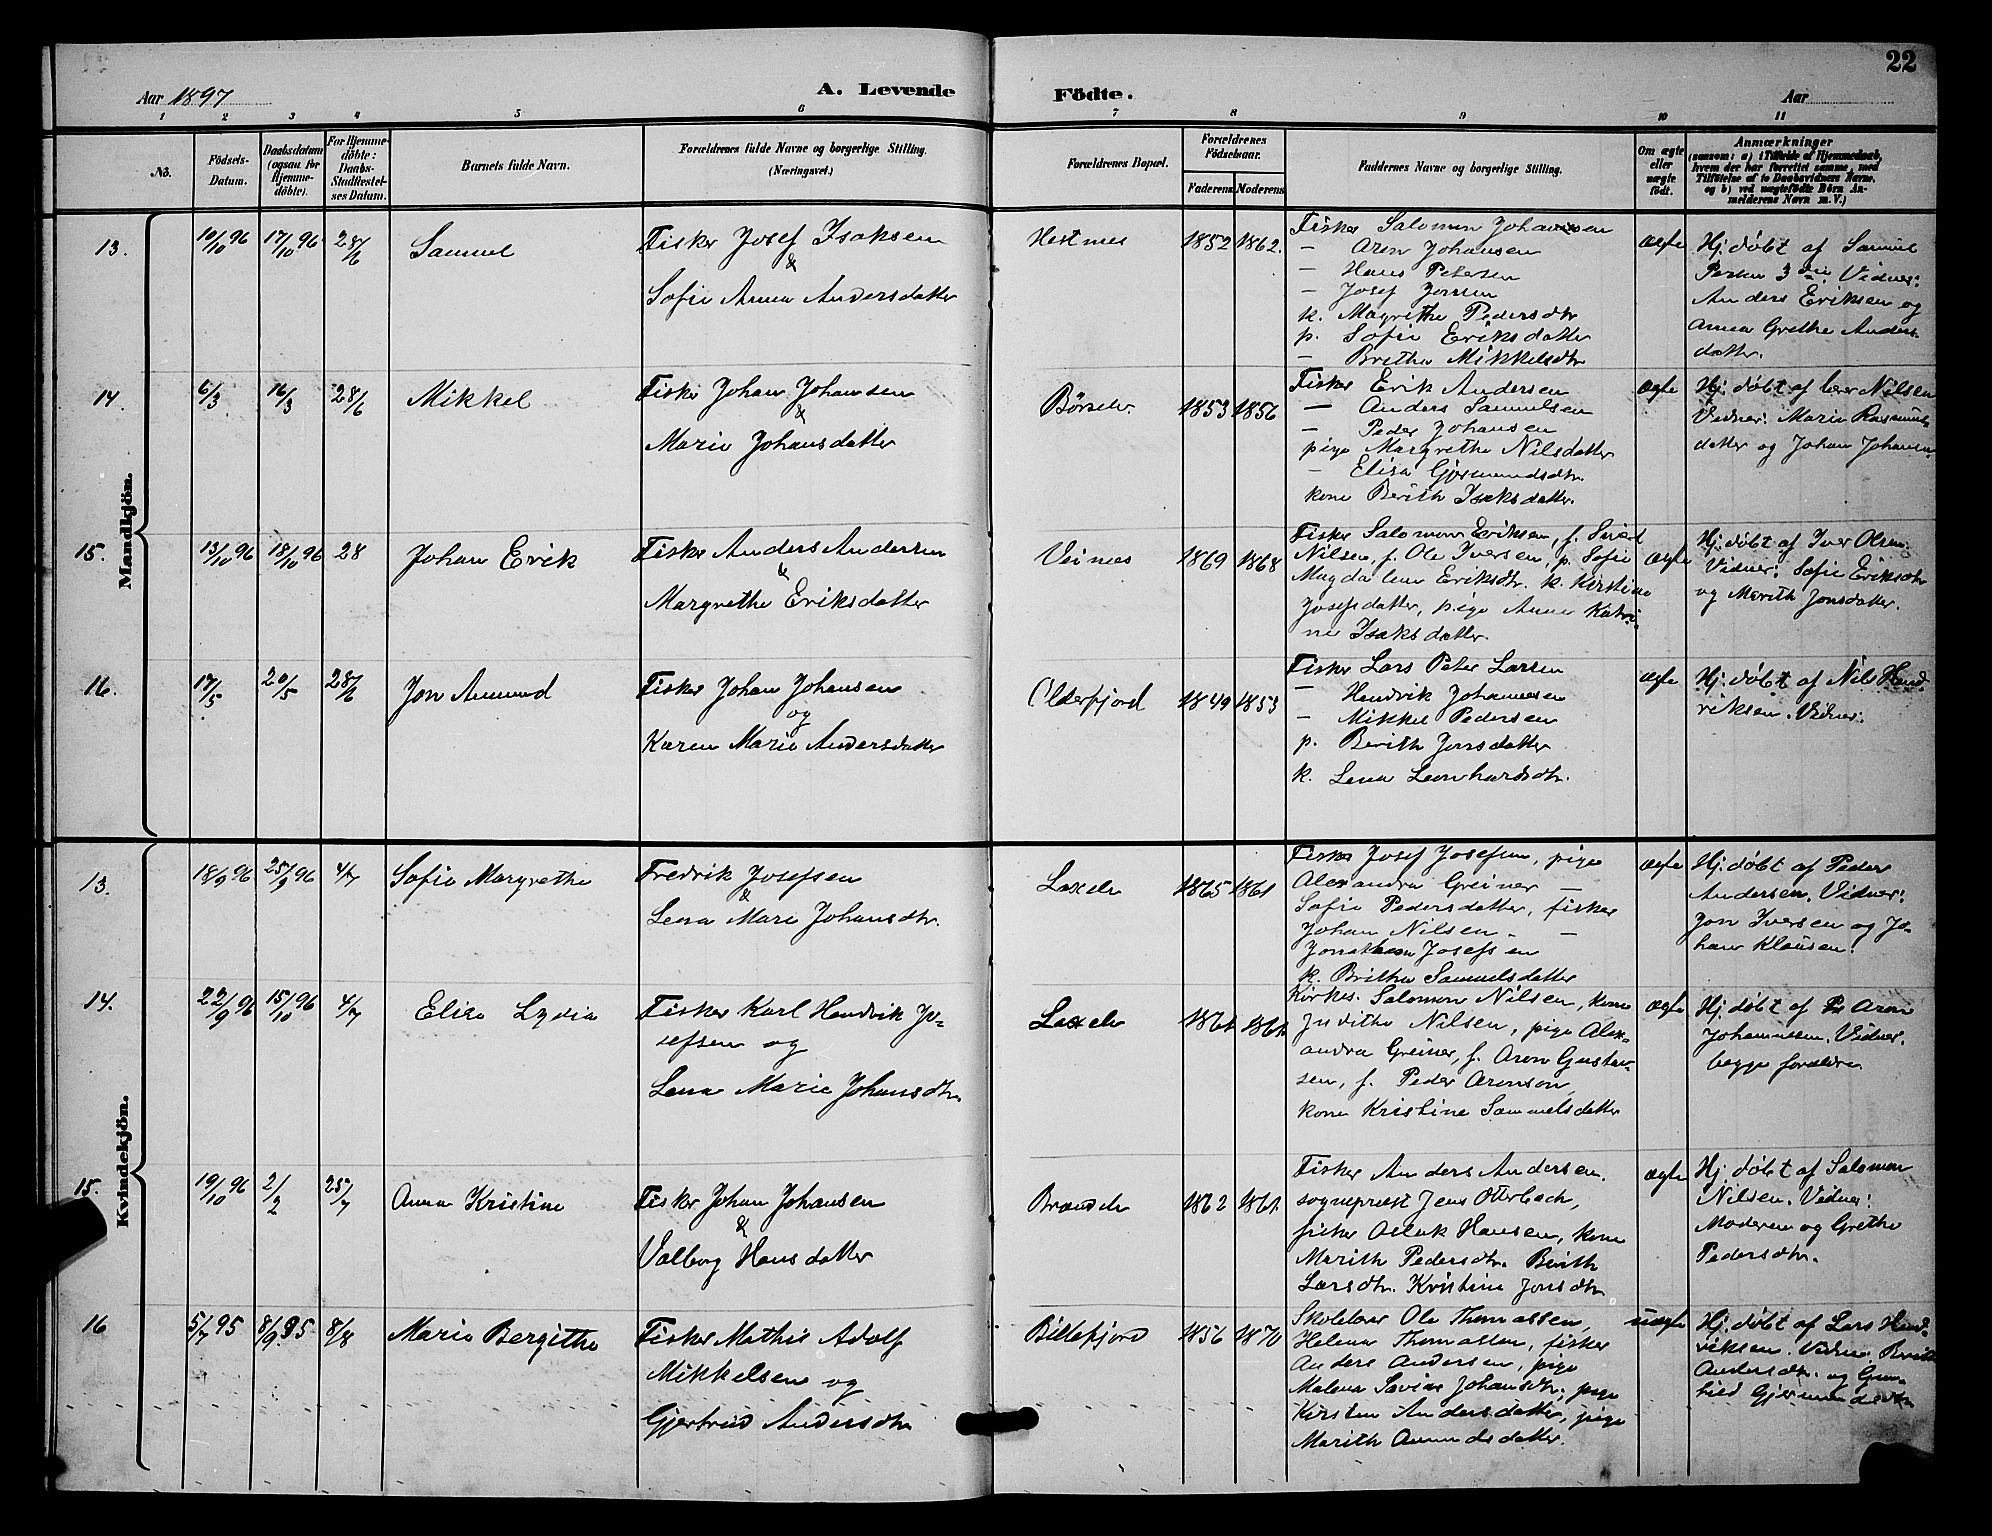 22
Aar 1897
A. Levende Födte.
Aar
1 2 3 4 5 6 7 8 9 10 11
No.
Födsels-Datum.
Daabsdatum (ogsaa for Hjemmedöbte).
For Hjemmedöbte: Daabs-Stadfæstelses Datum.
Barnets fulde Navn.
Forældrenes fulde Navne og borgerlige Stilling. (Næringsvei.)
Forældrenes Bopæl.
Forældrenes Födselsaar.
Faderens Moderens
Faddernes Navne og borgerlige Stilling.
Om ægte eller uægte födt.
Anmærkninger
(saasom: a) i Tilfælde af Hjemmedaab, hvem der har forrettet samme, med Tilföielse af to Daabsvidners Navne, og b) ved uægtefödte Börn Anmelderens Navn m. V.)
Mandkjön.
13. 10/10 96 17/10 96 28/6 Samuel
Fisker Josef Isaksen
&
Sofie Anna Andersdatter
Hestnes 1852 1862.
Fisker Salomon Johansen
— Aron Johansen
— Hans Petersen
— Josef Jonsen
k. Magrethe Pedersdtr
p. Sofie Eriksdatter
— Brithe Mikkelsdtr
ægte
Hj. døbt af Samuel
Persen Vidner:
Anders Eriksen og
Anna Grethe Anders
datter.
14. 6/3 16/3 28/6 Mikkel
Fisker Johan Johansen
&
Marie Johansdatter
Børselv. 1853 1856
Fisker Erik Andersen
— Anders Samuelsen
— Peder Johansen
pige Margrethe Nilsdatter
— Elisa Gjermundsdtr.
kone Berith Isaksdatter.
ægte
Hj. døbt af Nilsen
Vidner: Marie Rasmus
datter og Johan Johansen.
15. 13/10 96 18/10 96 28 Johan Erik
Fisker Anders Andersen
&
Margrethe Eriksdatter
Veines 1869 1868
Fisker Salomon Eriksen, f.
Nilsen, f. Ole Iversen, p. Sofie
Magdalena Eriksdtr. k. Kirstine
Josefsdatter, pige Anne Katri-
ne Isaksdatter.
ægte
Hj. døbt af Iver Olsen.
Vidner: Sofie Eriksdtr
og Marith Jonsdatter.
16. 17/5 20/5 28/6 Jon Amund
Fisker Johan Johansen
og
Karen Marie Andersdatter
Olderfjord 1849 1853
Fisker Lars Peter Larsen
— Hendrik Johannesen
— Mikkel Pedersen
p. Berith Jonsdatter
k. Lena Leonhardsdtr.
ægte
Hj. døbt af Nils Hend-
riksen. Vidner:
Kvindekjön.
13. 18/9 96 25/9 96 4/7 Sofie Margrethe
Fredrik Josefsen
&
Lena Marie Johansdtr.
Laxelv 1865 1861
Fisker Josef Josefsen, pige
Alexandra Greiner —
Sofie Pedersdatter, fisker
Johan Nilsen - —
Jonathan Josefsen
k. Brithe Samuelsdatter
ægte
Hj. døbt af Peder
Andersen. Vidner:
Jon Iversen og Jo-
han Klausen.
14. 22/9 96 15/10 96 4/7 Elisa Lydia
Fisker Karl Hendrik Jo-
sefsen og
Lena Marie Johansdtr.
Laxelv 1861 1861
Kirkes. Salomon Nilsen, kone
Judithe Nilsen, pige Alex-
andra Greiner, f. Aron Gustav-
sen, f. Peder Aronsen,
kone Kristine Sammelsdatter
ægte
Hj. døbt af Aron
Johannesen. Vidner.
begge forældre
15. 19/10 96 2/2 25/7 Anna Kristine
Fisker Johan Johansen
&
Valborg Hansdatter
Brændelv 1862 1861
Fisker Anders Andersen.
sogneprest Jens Otterbech,
fisker Aslak Hansen, kone
Marith Pedersdtr. Berith
Larsdtr. Kristine Jonsdtr
ægte
Hj. døbt af Salomon
Nilsen. Vidner:
Moderen og Grethe
Pedersdtr.
16 5/7 95 8/9 95 8/8 Marie Bergithe
Fisker Mathis Adolf
Mikkelsen og
Gjertrud Andersdtr
Billefjord 1856 1870
Skolelærer Ole Thomassen,
Helena Thomassen, fisker
Anders Andersen, pige
Malena Johansdtr, pige
Kirsten Andersdatter, pige
Marith Amundsdatter.
uægte
Hj. døbt af Lars Hend-
riksen. Vidner Berith
Andersdtr. og Gun-
hild Gjermundsdtr